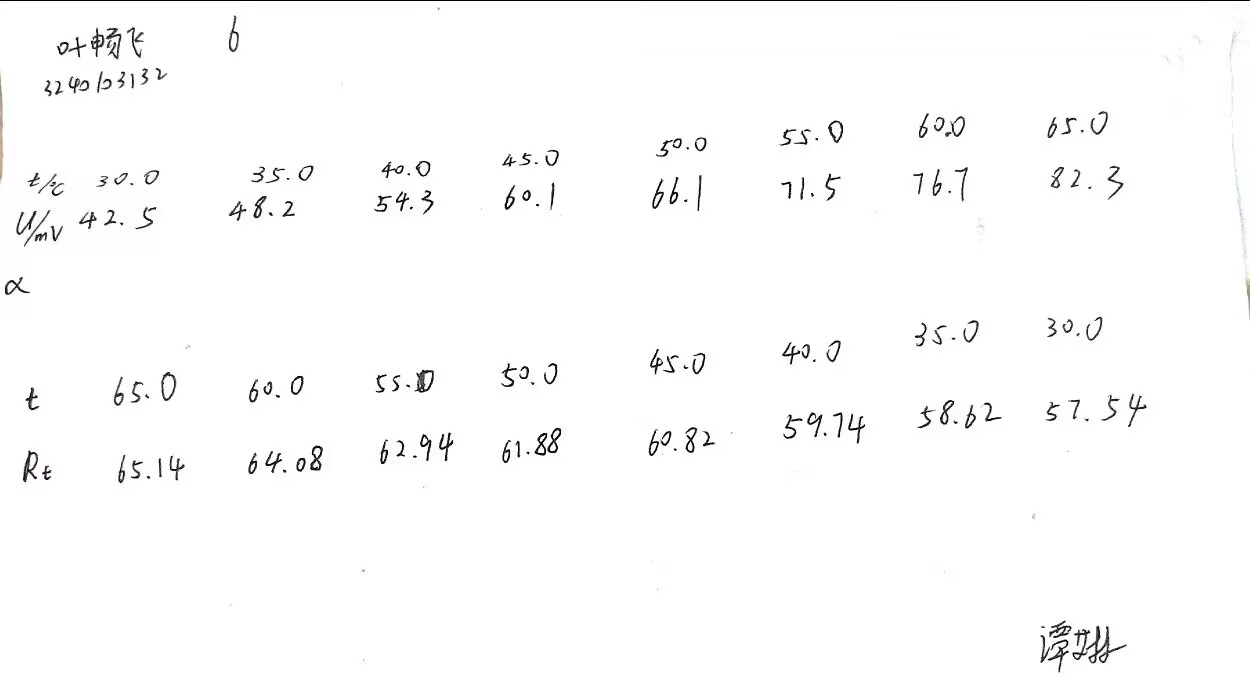 叶畅飞 6
3240103132
t/℃ 30.0 35.0 40.0 45.0 50.0 55.0 60.0 65.0
U/mV 42.5 48.2 54.3 60.1 66.1 71.5 76.7 82.3
α
t 65.0 60.0 55.0 50.0 45.0 40.0 35.0 30.0
Rt 65.14 64.08 62.94 61.88 60.82 59.74 58.62 57.54
谭